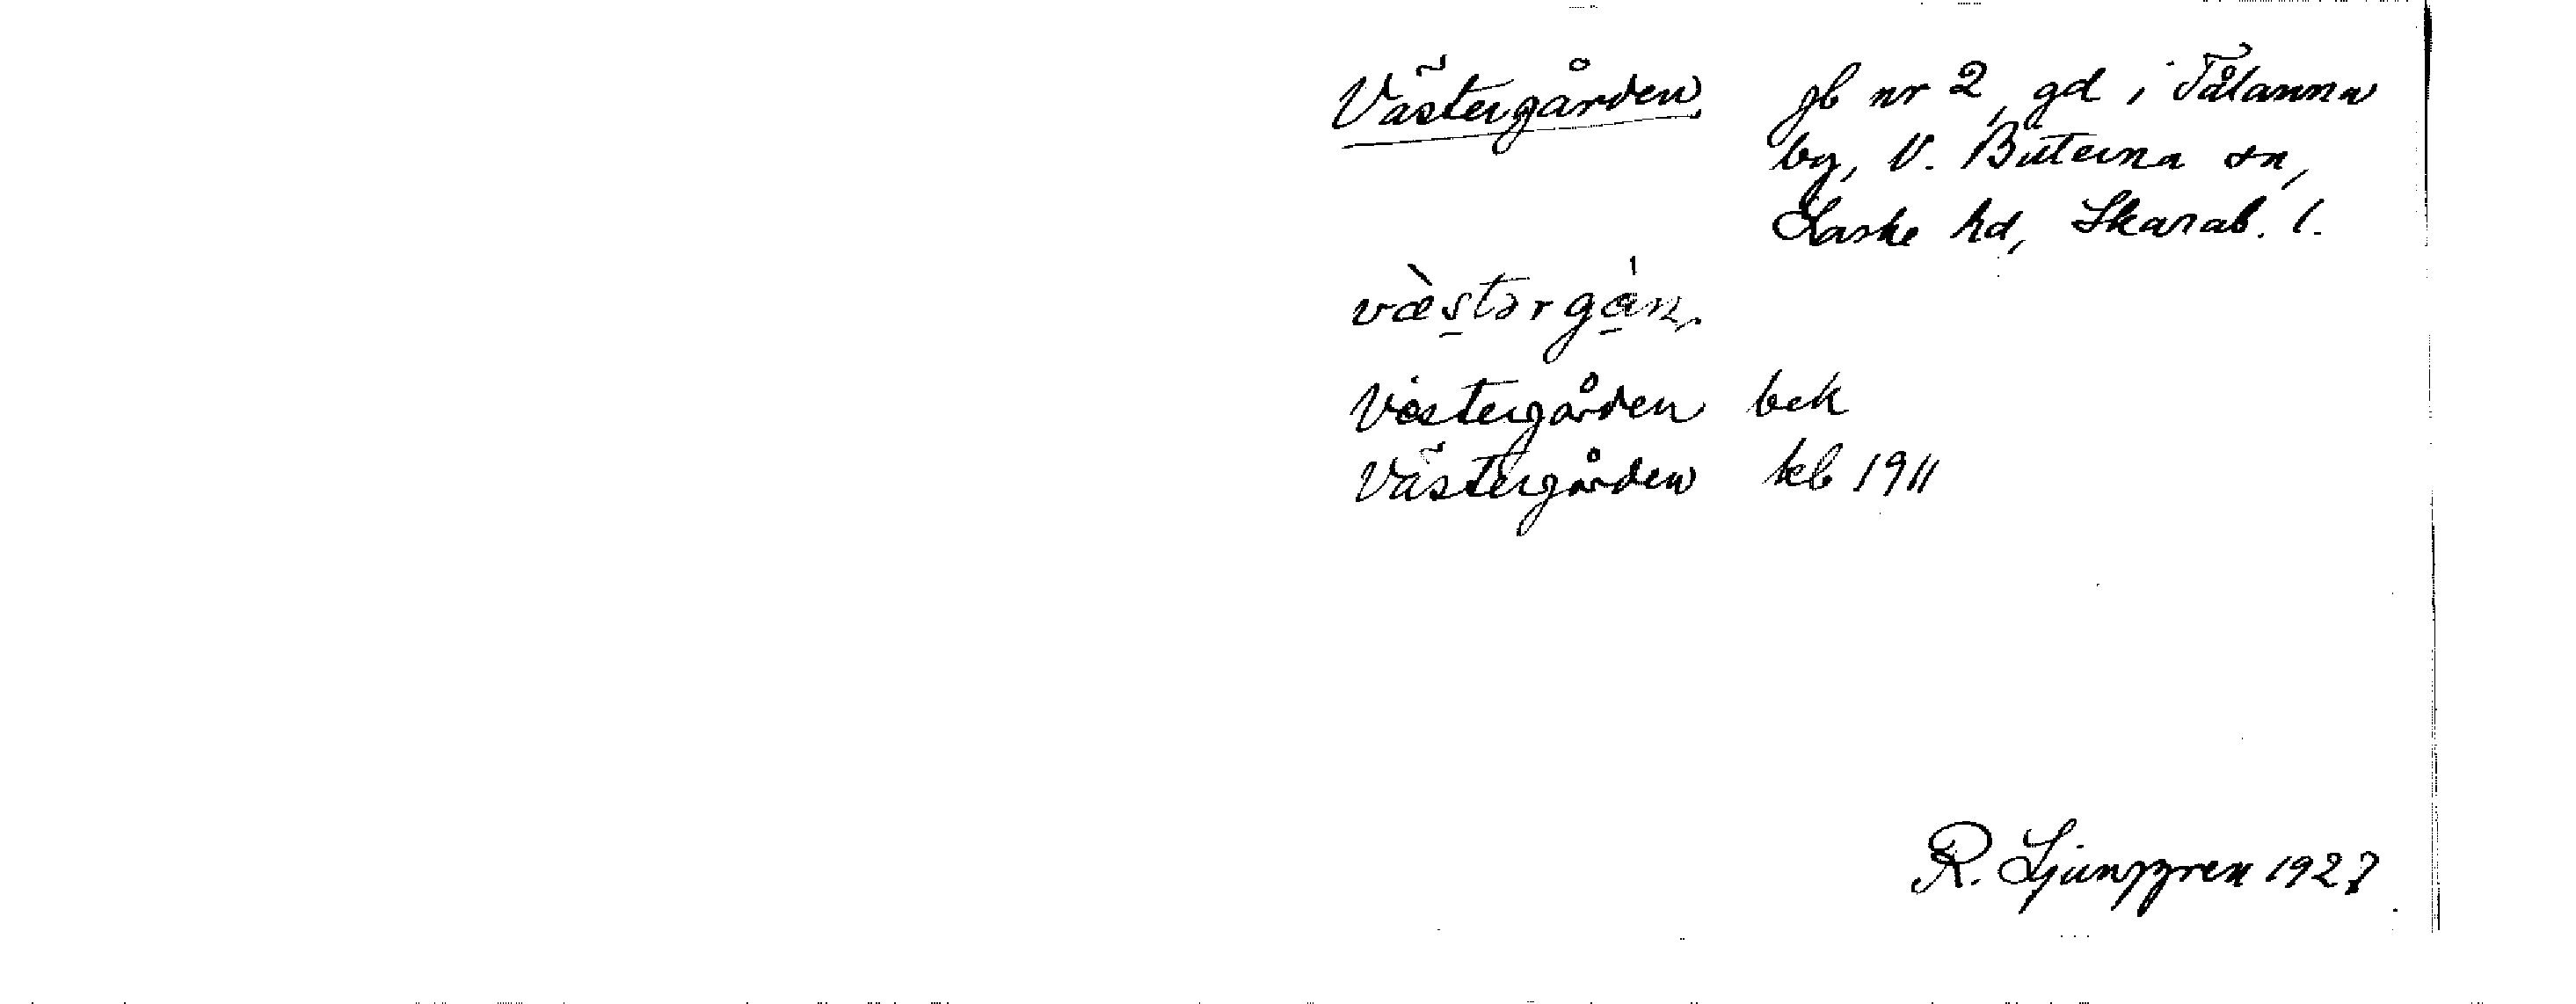 Västergården jb nr 2, gd i Tålanna
by, V. Bitterna sn,
Laske hd, Skarab. l.
væ̀stərgán.
Västergården bek
Västergården kb 1911
R. Ljunggren 1927